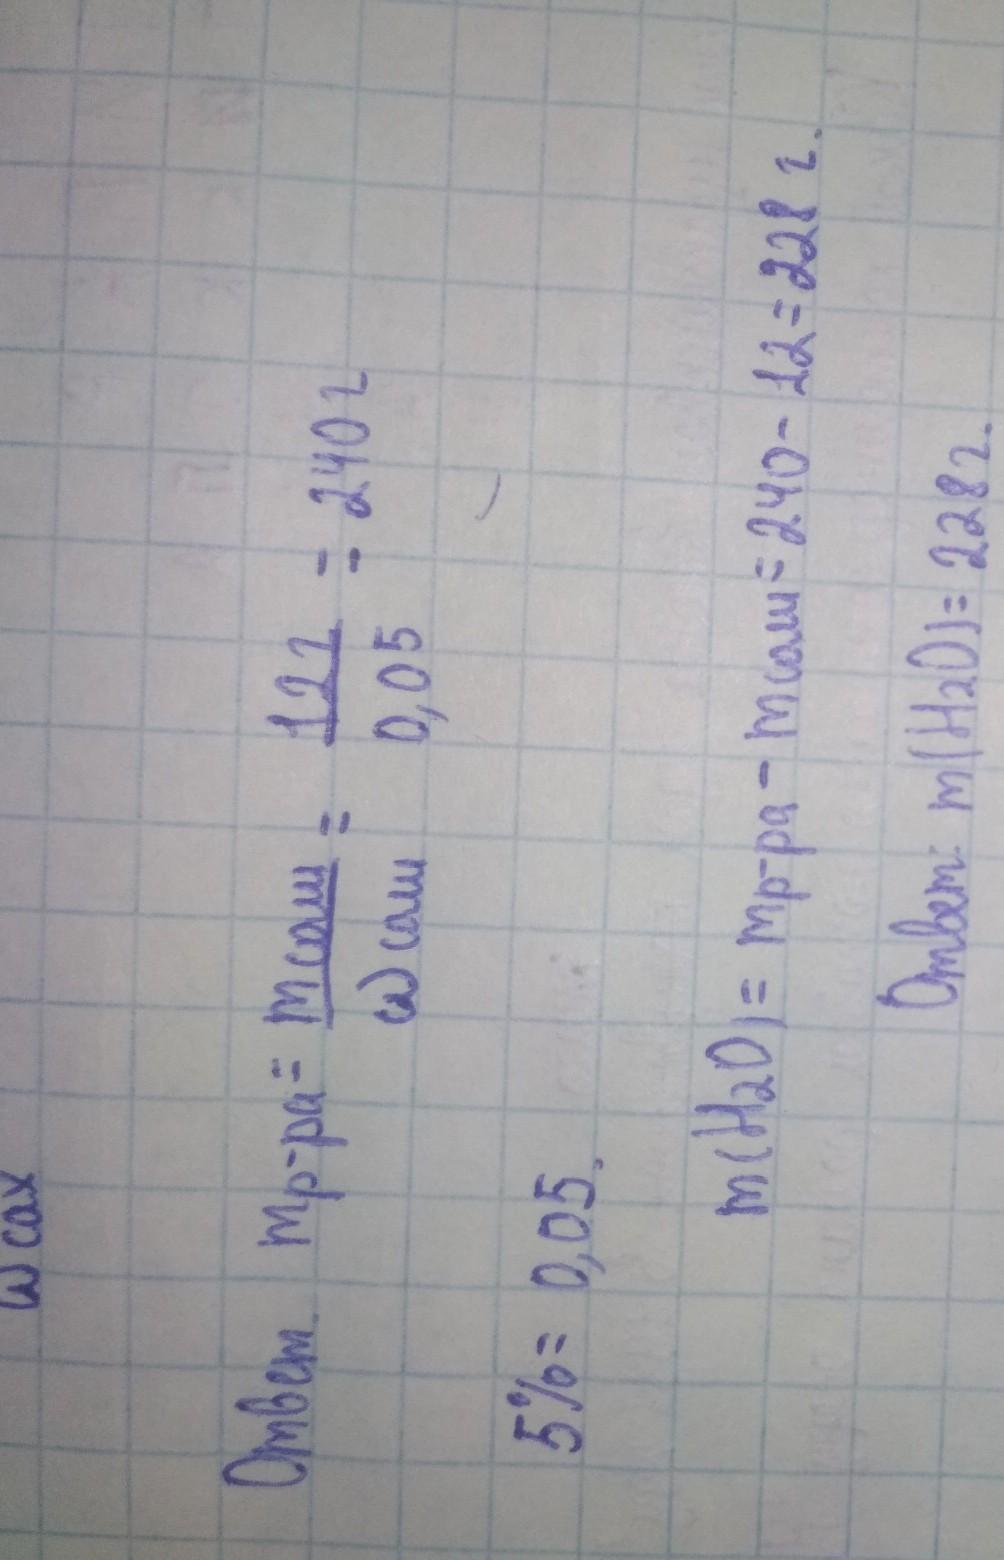 ω сах
Ответ. mр-ра = mсаш / ωсаш = 12г / 0,05 = 240 г
5% = 0,05.
m(H₂O) = mр-ра - mсаш = 240 - 12 = 228 г.
Ответ: m(H₂O) = 228 г.